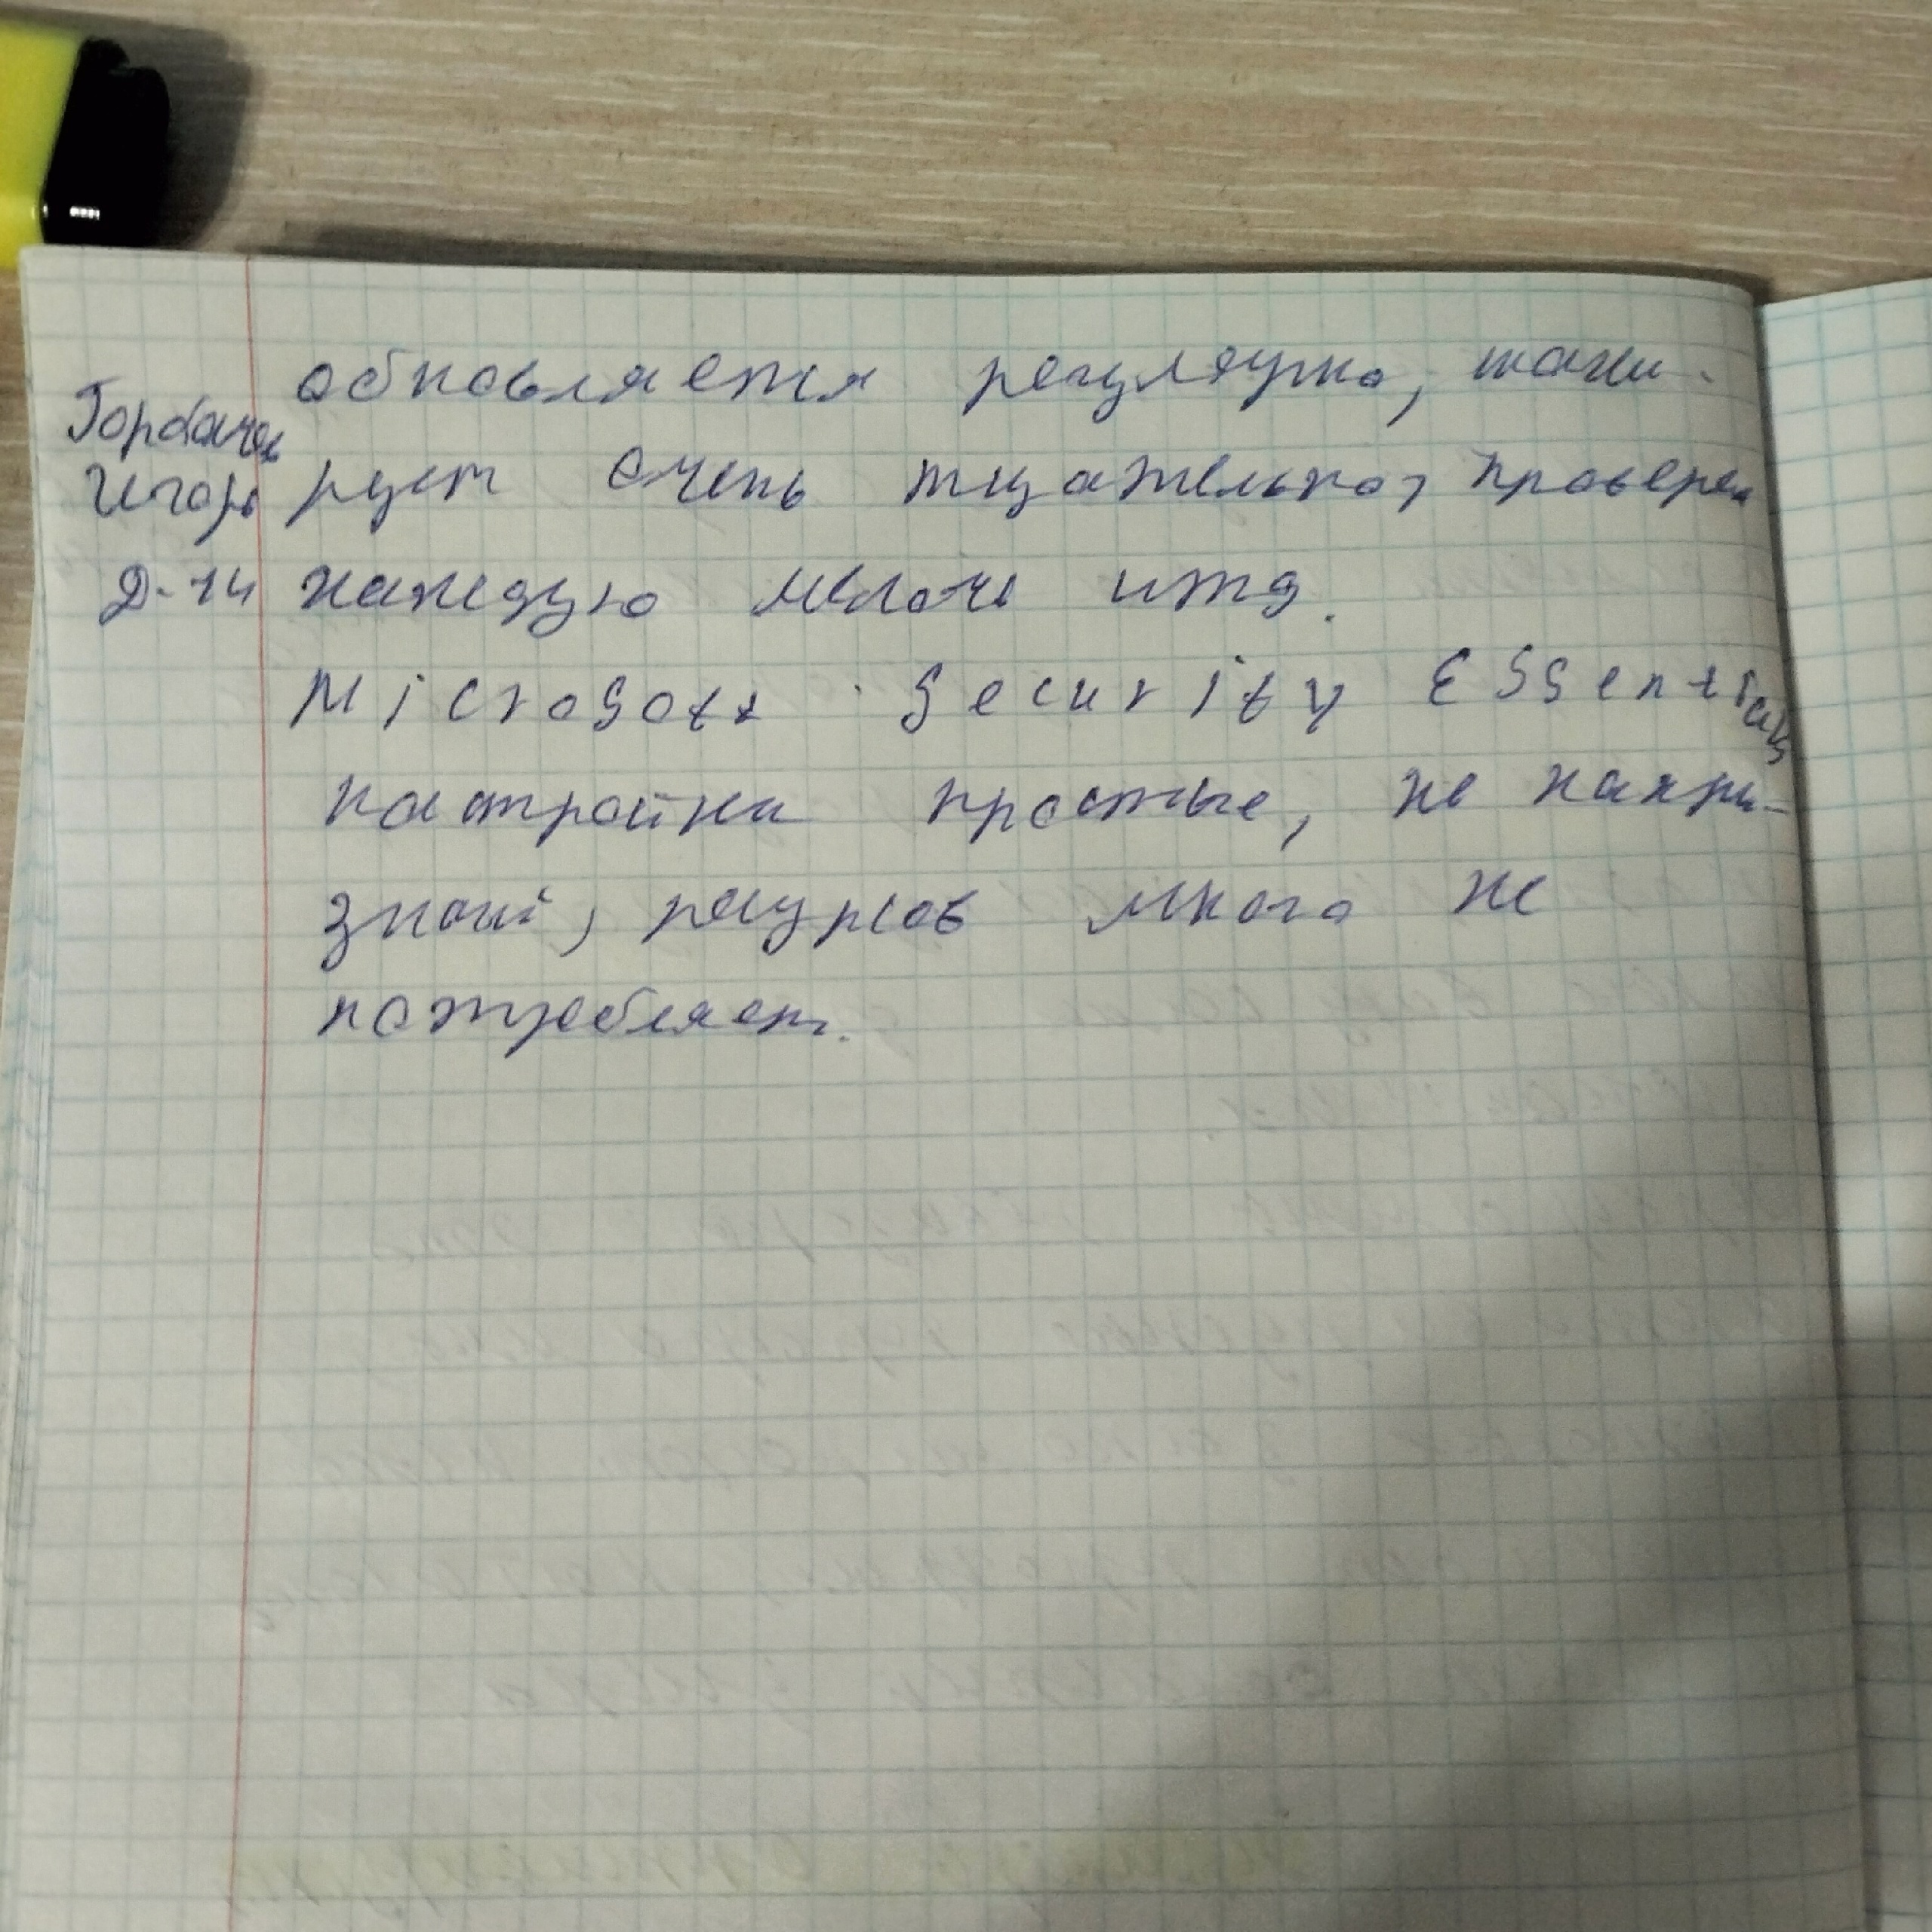 обновляется регулярно, скани-
Горбачев
Игорь
Д-14
рует очень тщательно, проверял
каждую мелочь итд.
Microsoft Security Essentials
настройки простые, не капри-
зный, ресурсов много не
потребляет.